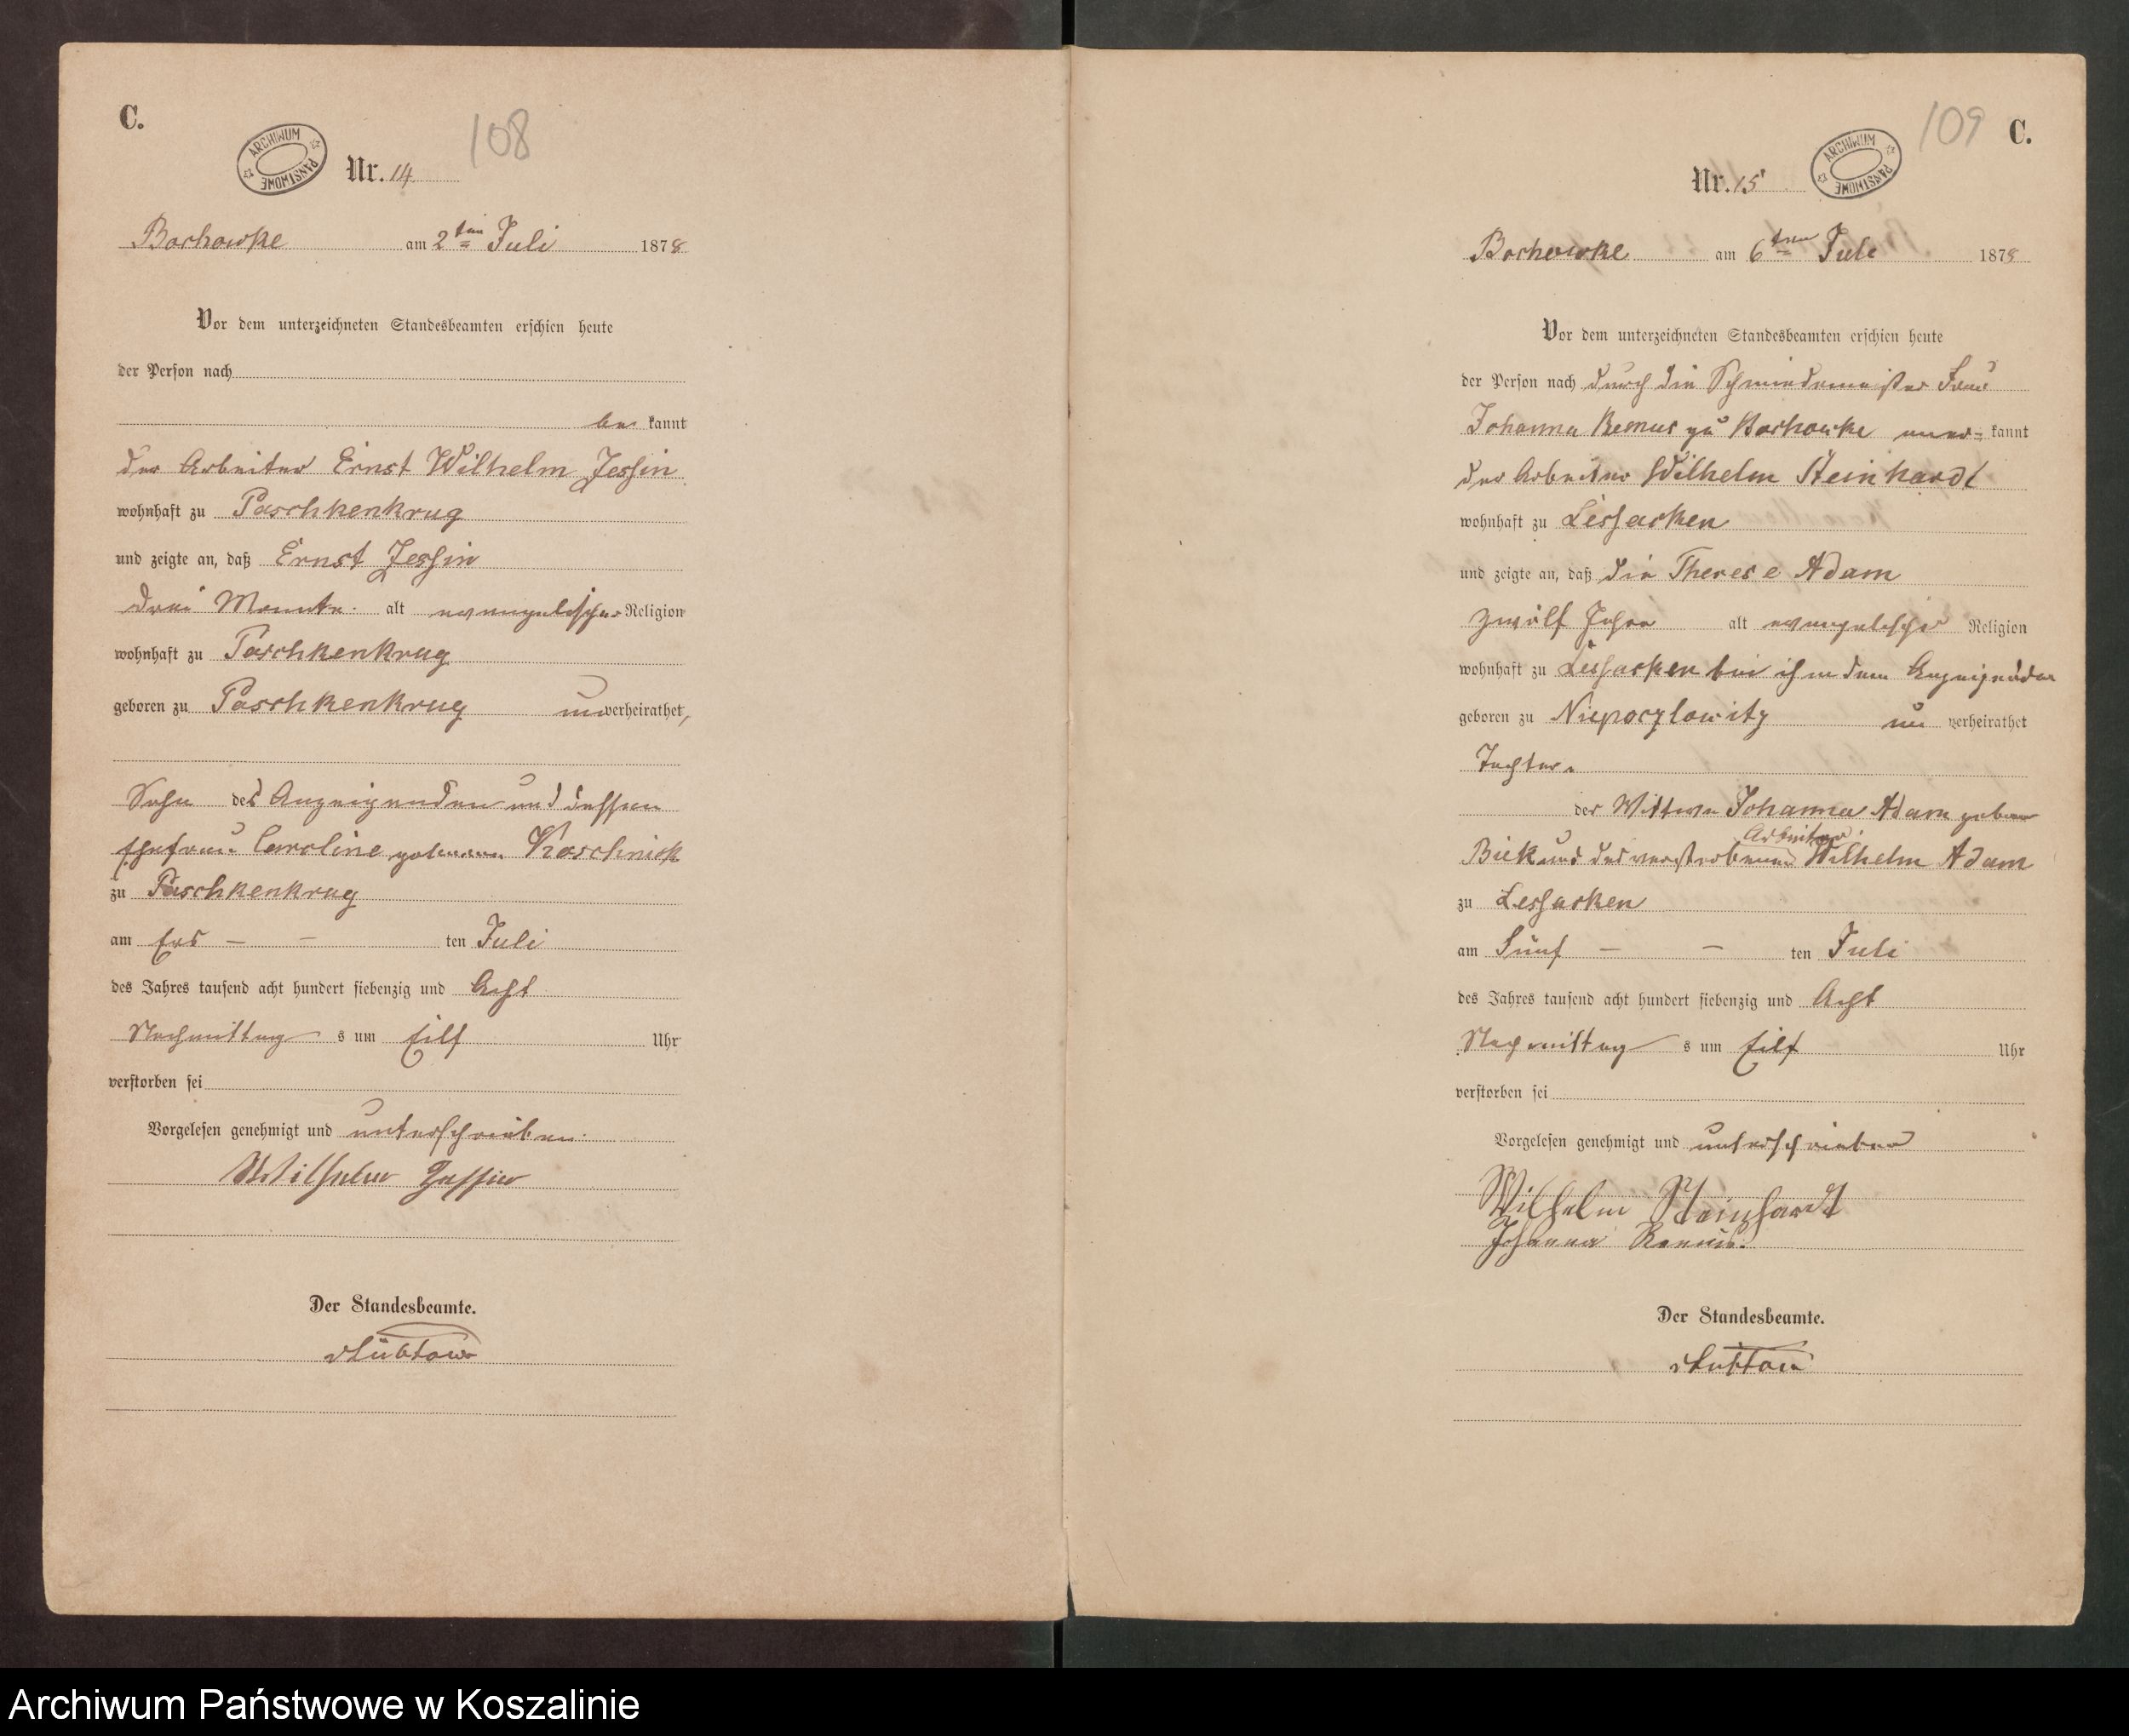 C.
ARCHIWUM PAŃSTWOWE
108
Nr. 14
Bochowke am 2ten Juli 1878
Vor dem unterzeichneten Standesbeamten erschien heute
der Person nach
be kannt
der Arbeiter Ernst Wilhelm Jessin
wohnhaft zu Paschkenkrug
und zeigte an, daß Ernst Jessin
drei Monate alt evangelischer Religion
wohnhaft zu Paschkenkrug
geboren zu Paschkenkrug unverheirathet,
Sohn des Anzeigenden und dessen
Ehefrau Caroline geborenen Kaschnick
zu Paschkenkrug
am Ers – – ten Juli
des Jahres tausend acht hundert siebenzig und Acht
Nachmittag s um Eilf Uhr
verstorben sei
Vorgelesen genehmigt und unterschrieben.
Wilhelm Jessin
Der Standesbeamte.
vLübtow
109
C.
ARCHIWUM PAŃSTWOWE
Nr. 15
Bochowke am 6ten Juli 1878
Vor dem unterzeichneten Standesbeamten erschien heute
der Person nach durch die Schmiedemeister Frau
Johanna Remus zu Bochowke aner= kannt
der Arbeiter Wilhelm Steinhardt
wohnhaft zu Lessacken
und zeigte an, daß die Therese Adam
zwölf Jahre alt evangelischer Religion
wohnhaft zu Lessacken bei ihm dem Anzeigender
geboren zu Niepoczlowitz un verheirathet
Tochter
der Wittwe Johanna Adam geboren
Arbeiter
Biek und des verstorbenen Wilhelm Adam
zu Lessacken
am Fünf – – ten Juli
des Jahres tausend acht hundert siebenzig und Acht
Nachmittag s um Eilf Uhr
verstorben sei
Vorgelesen genehmigt und unterschrieben
Wilhelm Steinhardt
Johanna Remus.
Der Standesbeamte.
vLübtow
Archiwum Państwowe w Koszalinie